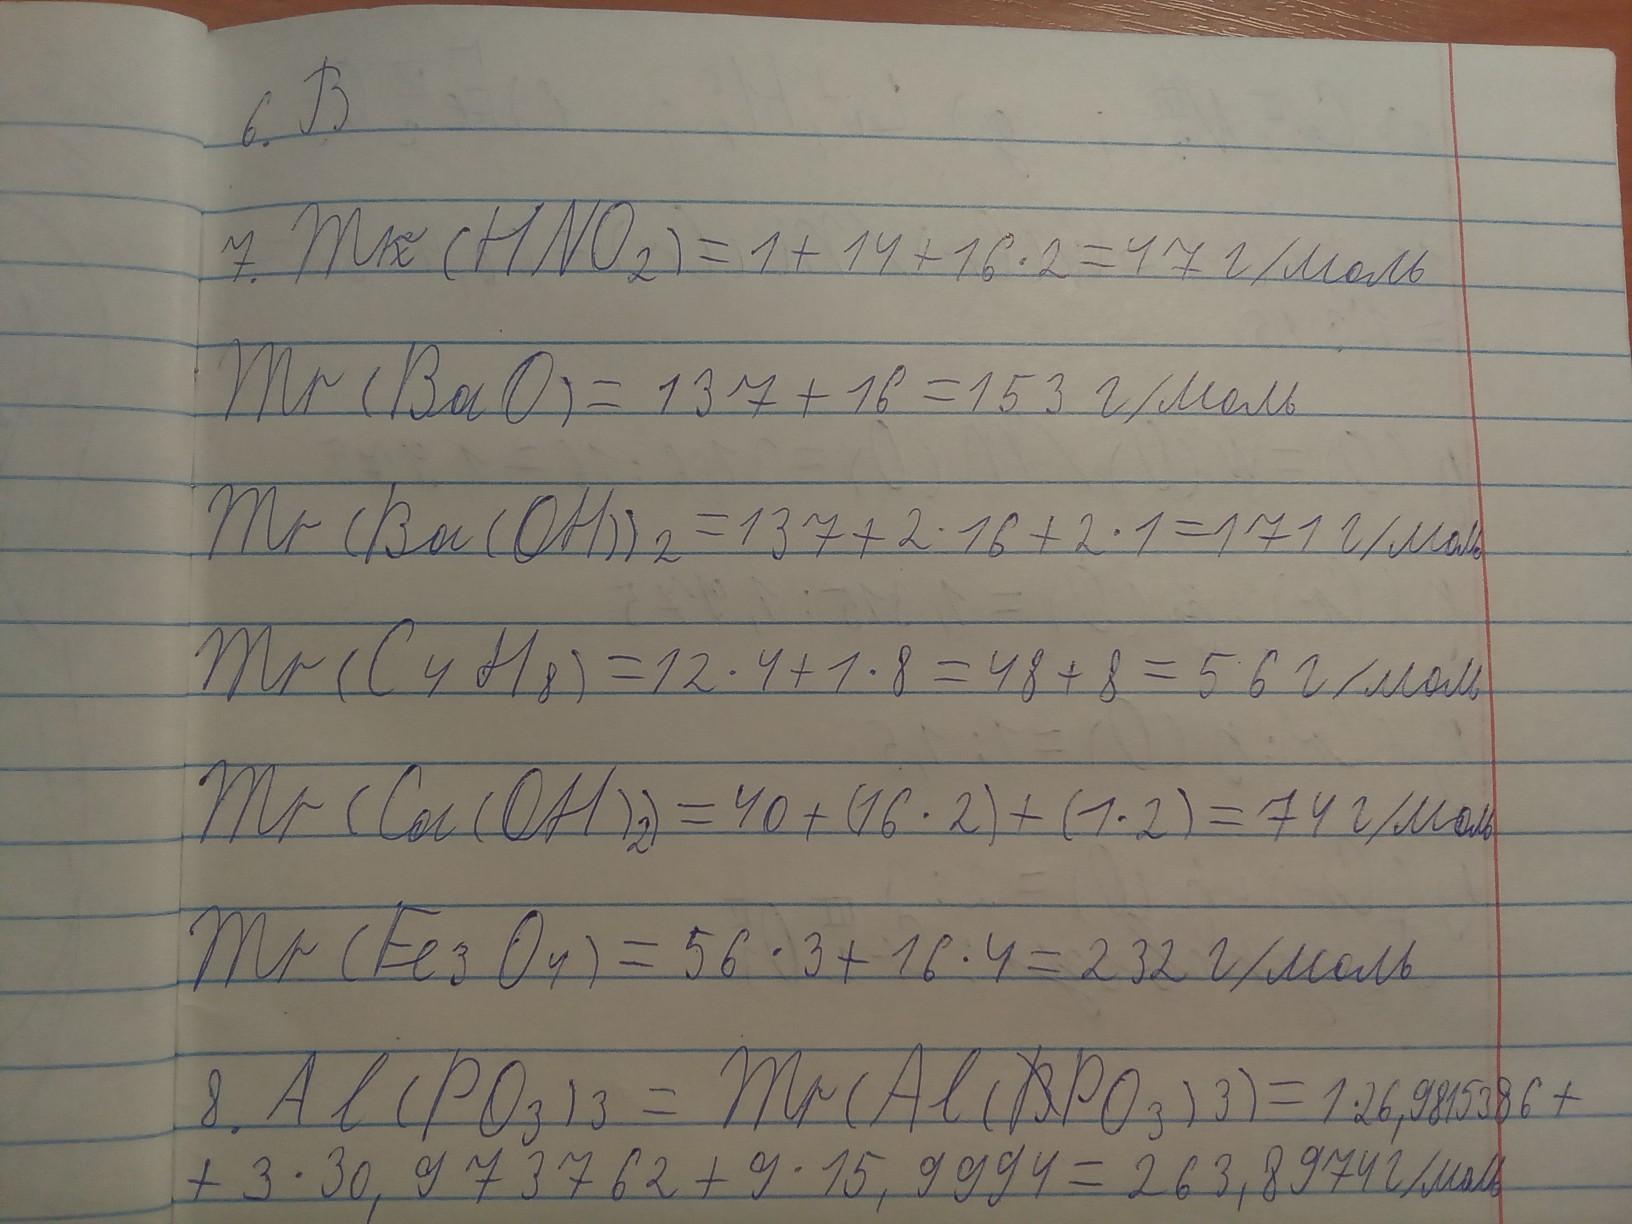 6. В
7. Mr (HNO2) = 1 + 14 + 16 · 2 = 47 г/моль
Mr (BaO) = 137 + 16 = 153 г/моль
Mr (Ba(OH))2 = 137 + 2 · 16 + 2 · 1 = 171 г/моль
Mr (C4H8) = 12 · 4 + 1 · 8 = 48 + 8 = 56 г/моль
Mr (Ca(OH)2) = 40 + (16 · 2) + (1 · 2) = 74 г/моль
Mr (Fe3O4) = 56 · 3 + 16 · 4 = 232 г/моль
8. Al(PO3)3 = Mr (Al(PO3)3) = 1·26,9815386 +
+ 3 · 30,973762 + 9 · 15,9994 = 263,8974 г/моль